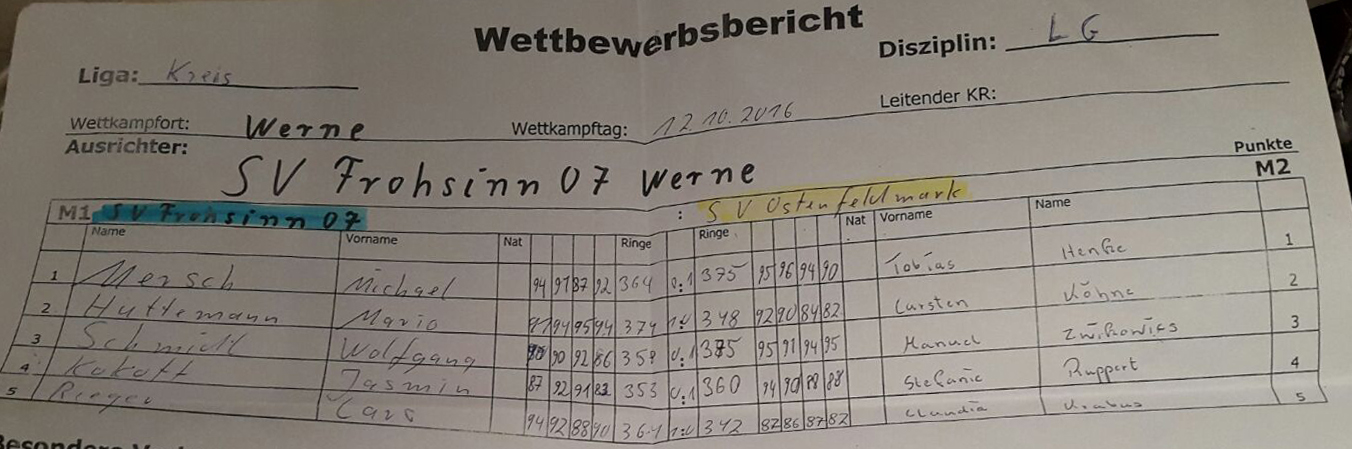 Wettbewerbsbericht
Liga: Kreis Disziplin: LG
Wettkampfort: Werne Wettkampftag: 12.10.2016 Leitender KR:
Ausrichter: SV Frohsinn 07 Werne
Punkte
M1 SV Frohsinn 07 : SV Ostenfeldmark M2
Name Vorname Nat Ringe Ringe Nat Vorname Name
1 Mersch Michael 94 91 87 92 364 0:1 375 95 96 94 90 Tobias Henke 1
2 Hüttemann Mario 91 94 95 94 374 1:0 348 92 90 84 82 Carsten Köhne 2
3 Schmidt Wolfgang 90 92 86 358 0:1 375 95 91 94 95 Manuel 3
4 Kokott Jasmin 87 92 91 83 353 0:1 360 94 90 88 88 Stefanie Ruppert 4
5 Lars 94 92 88 90 364 1:0 342 87 86 87 82 Claudia 5